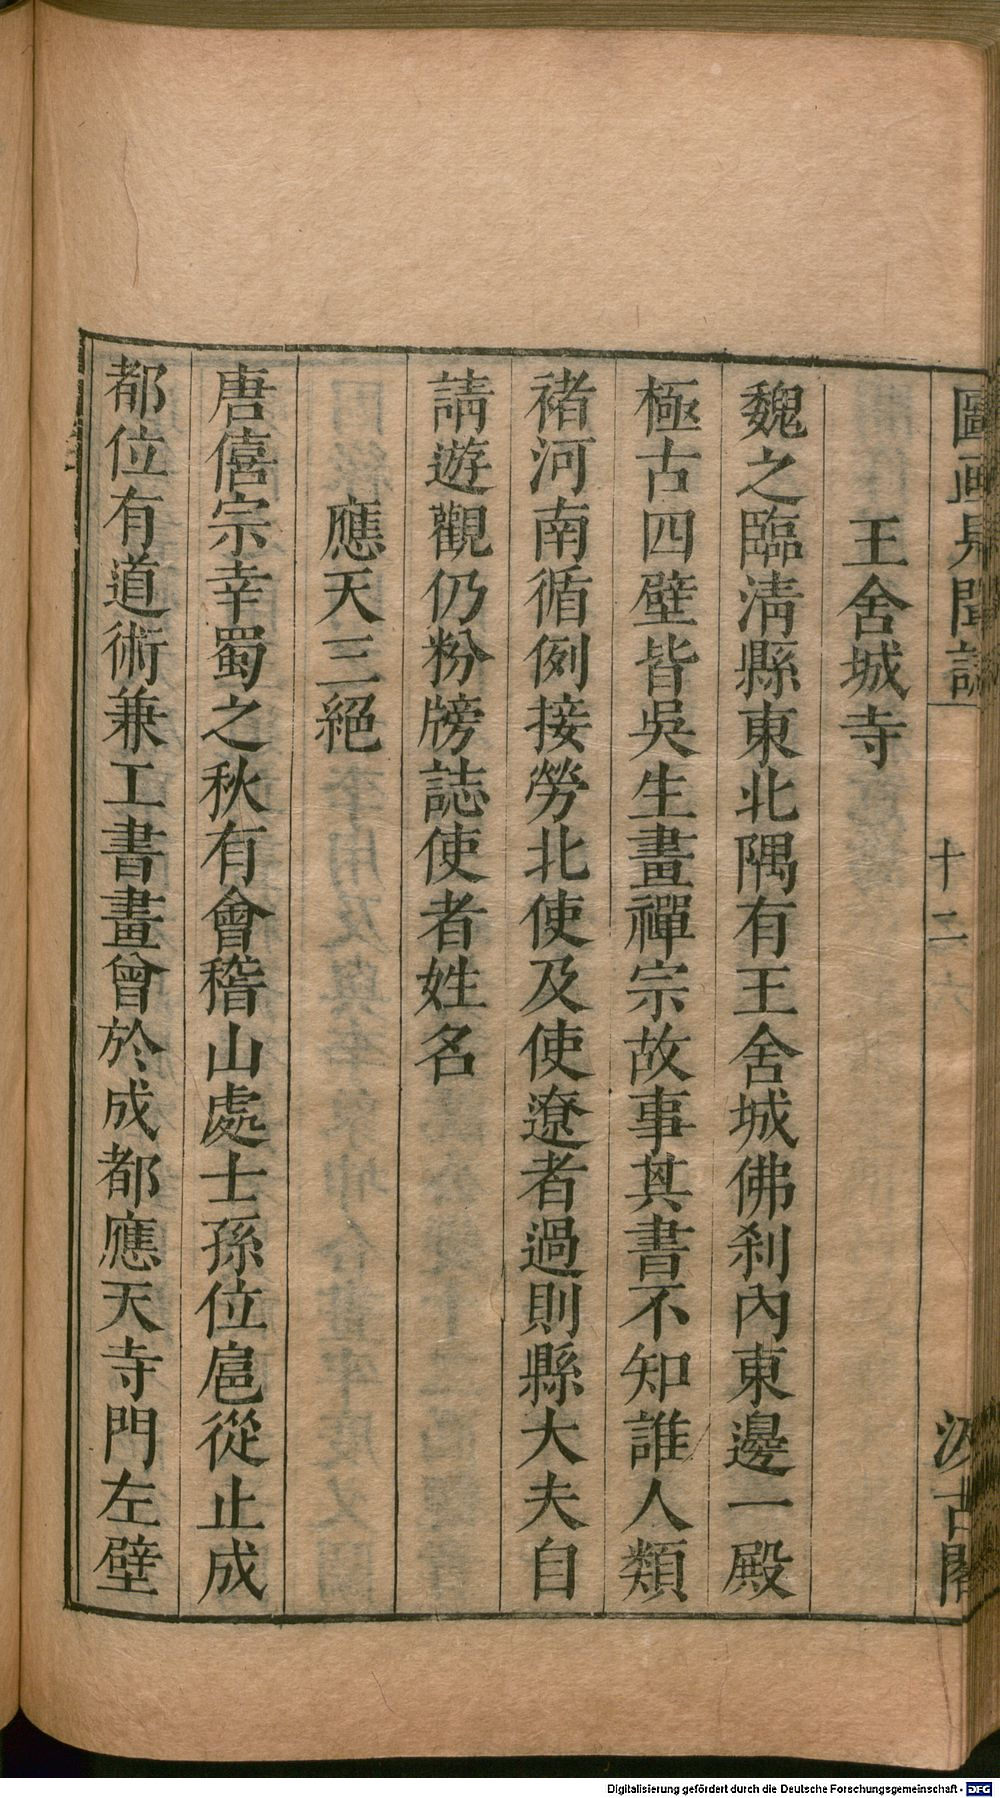 圖画見聞誌 十二六 汲古閣
王舍城寺
魏之臨淸縣東北隅有王舍城佛刹內東邊一殿
極古四壁皆吳生畫禪宗故事其書不知誰人類
褚河南循例接勞北使及使遼者過則縣大夫自
請遊觀仍粉牓誌使者姓名
應天三絕
唐僖宗幸蜀之秋有會稽山處士孫位扈從止成
都位有道術兼工書畫曾於成都應天寺門左壁
Digitalisierung gefördert durch die Deutsche Forschungsgemeinschaft - DFG